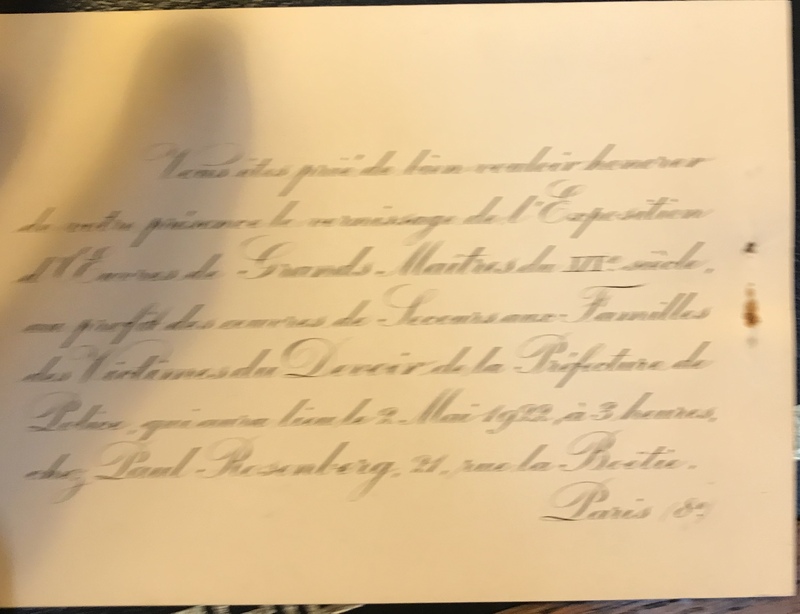 Vous êtes prié de bien vouloir honorer
de votre présence le vernissage de l'Exposition
d'Œuvres de Grands Maîtres du siècle,
au profit des œuvres de Secours aux Familles
des Victimes du Devoir de la Préfecture de
Police, qui aura lieu le 2 Mai 1922, à 3 heures,
chez Paul Rosenberg, 21, rue la Boëtie.
Paris (8e)